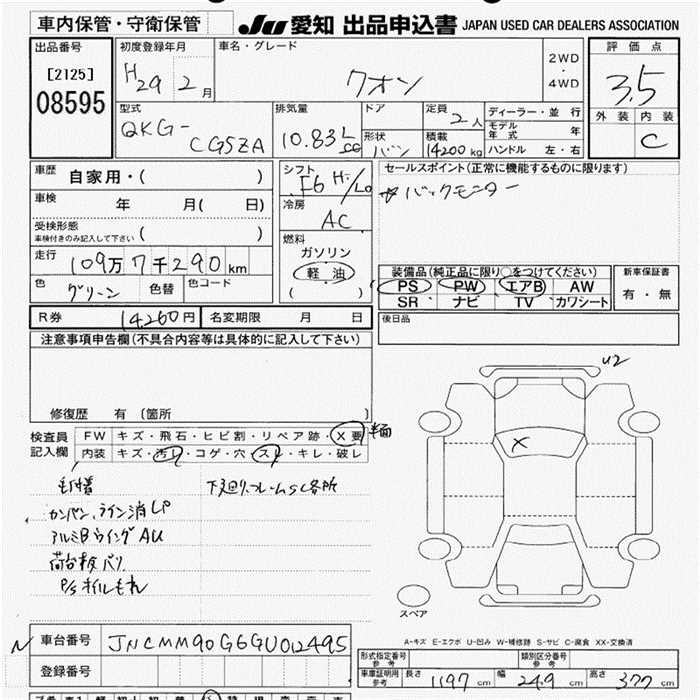 車内保管・守衛保管
JU 愛知 出品申込書 JAPAN USED CAR DEALERS ASSOCIATION
出品番号
[2125]
08595
初度登録年月
H29 2月
車名・グレード
クオン
2WD
・
4WD
評価点
3.5
外装 内装
C
型式
QKG-
CG5ZA
排気量
10.83L
cc
ドア
形状
バン
定員
2人
積載
14200kg
ディーラー・並行
モデル
年式 年
ハンドル 左・右
車歴 自家用・( )
車検 年 月( 日)
受検形態
車検付きのみ記入して下さい ( )
走行 109万7千290km
色 グリーン 色替 色コード
シフト
F6 Hi/Lo
冷房
AC
燃料
ガソリン
軽油
( )
セールスポイント(正常に機能するものに限ります)
バックモニター
装備品(純正品に限り○をつけてください)
PS PW エアB AW
SR ナビ TV カワシート
新車保証書
有・無
R券 14,260円 名変期限 月 日
後日品
注意事項申告欄(不具合内容等は具体的に記入して下さい)
修復歴 有 〔箇所 〕
検査員
記入欄
FW キズ・飛石・ヒビ割・リペア跡・X要
内装 キズ・汚れ・コゲ・穴・スレ・キレ・破レ
下廻り、フレームSC各所
カンバン、ライン消しP
アルミBウイングAU
荷台板バリ
P/Sオイルもれ
U2
X
スペア
A-キズ E-エクボ U-凹み W-補修跡 S-サビ C-腐食 XX-交換済
N 車台番号 JNCMM90G6GU012495
登録番号
形式指定番号
参考
類別区分番号
参考
車庫証明用
参考
長さ 1197cm 幅 249cm 高さ 377cm